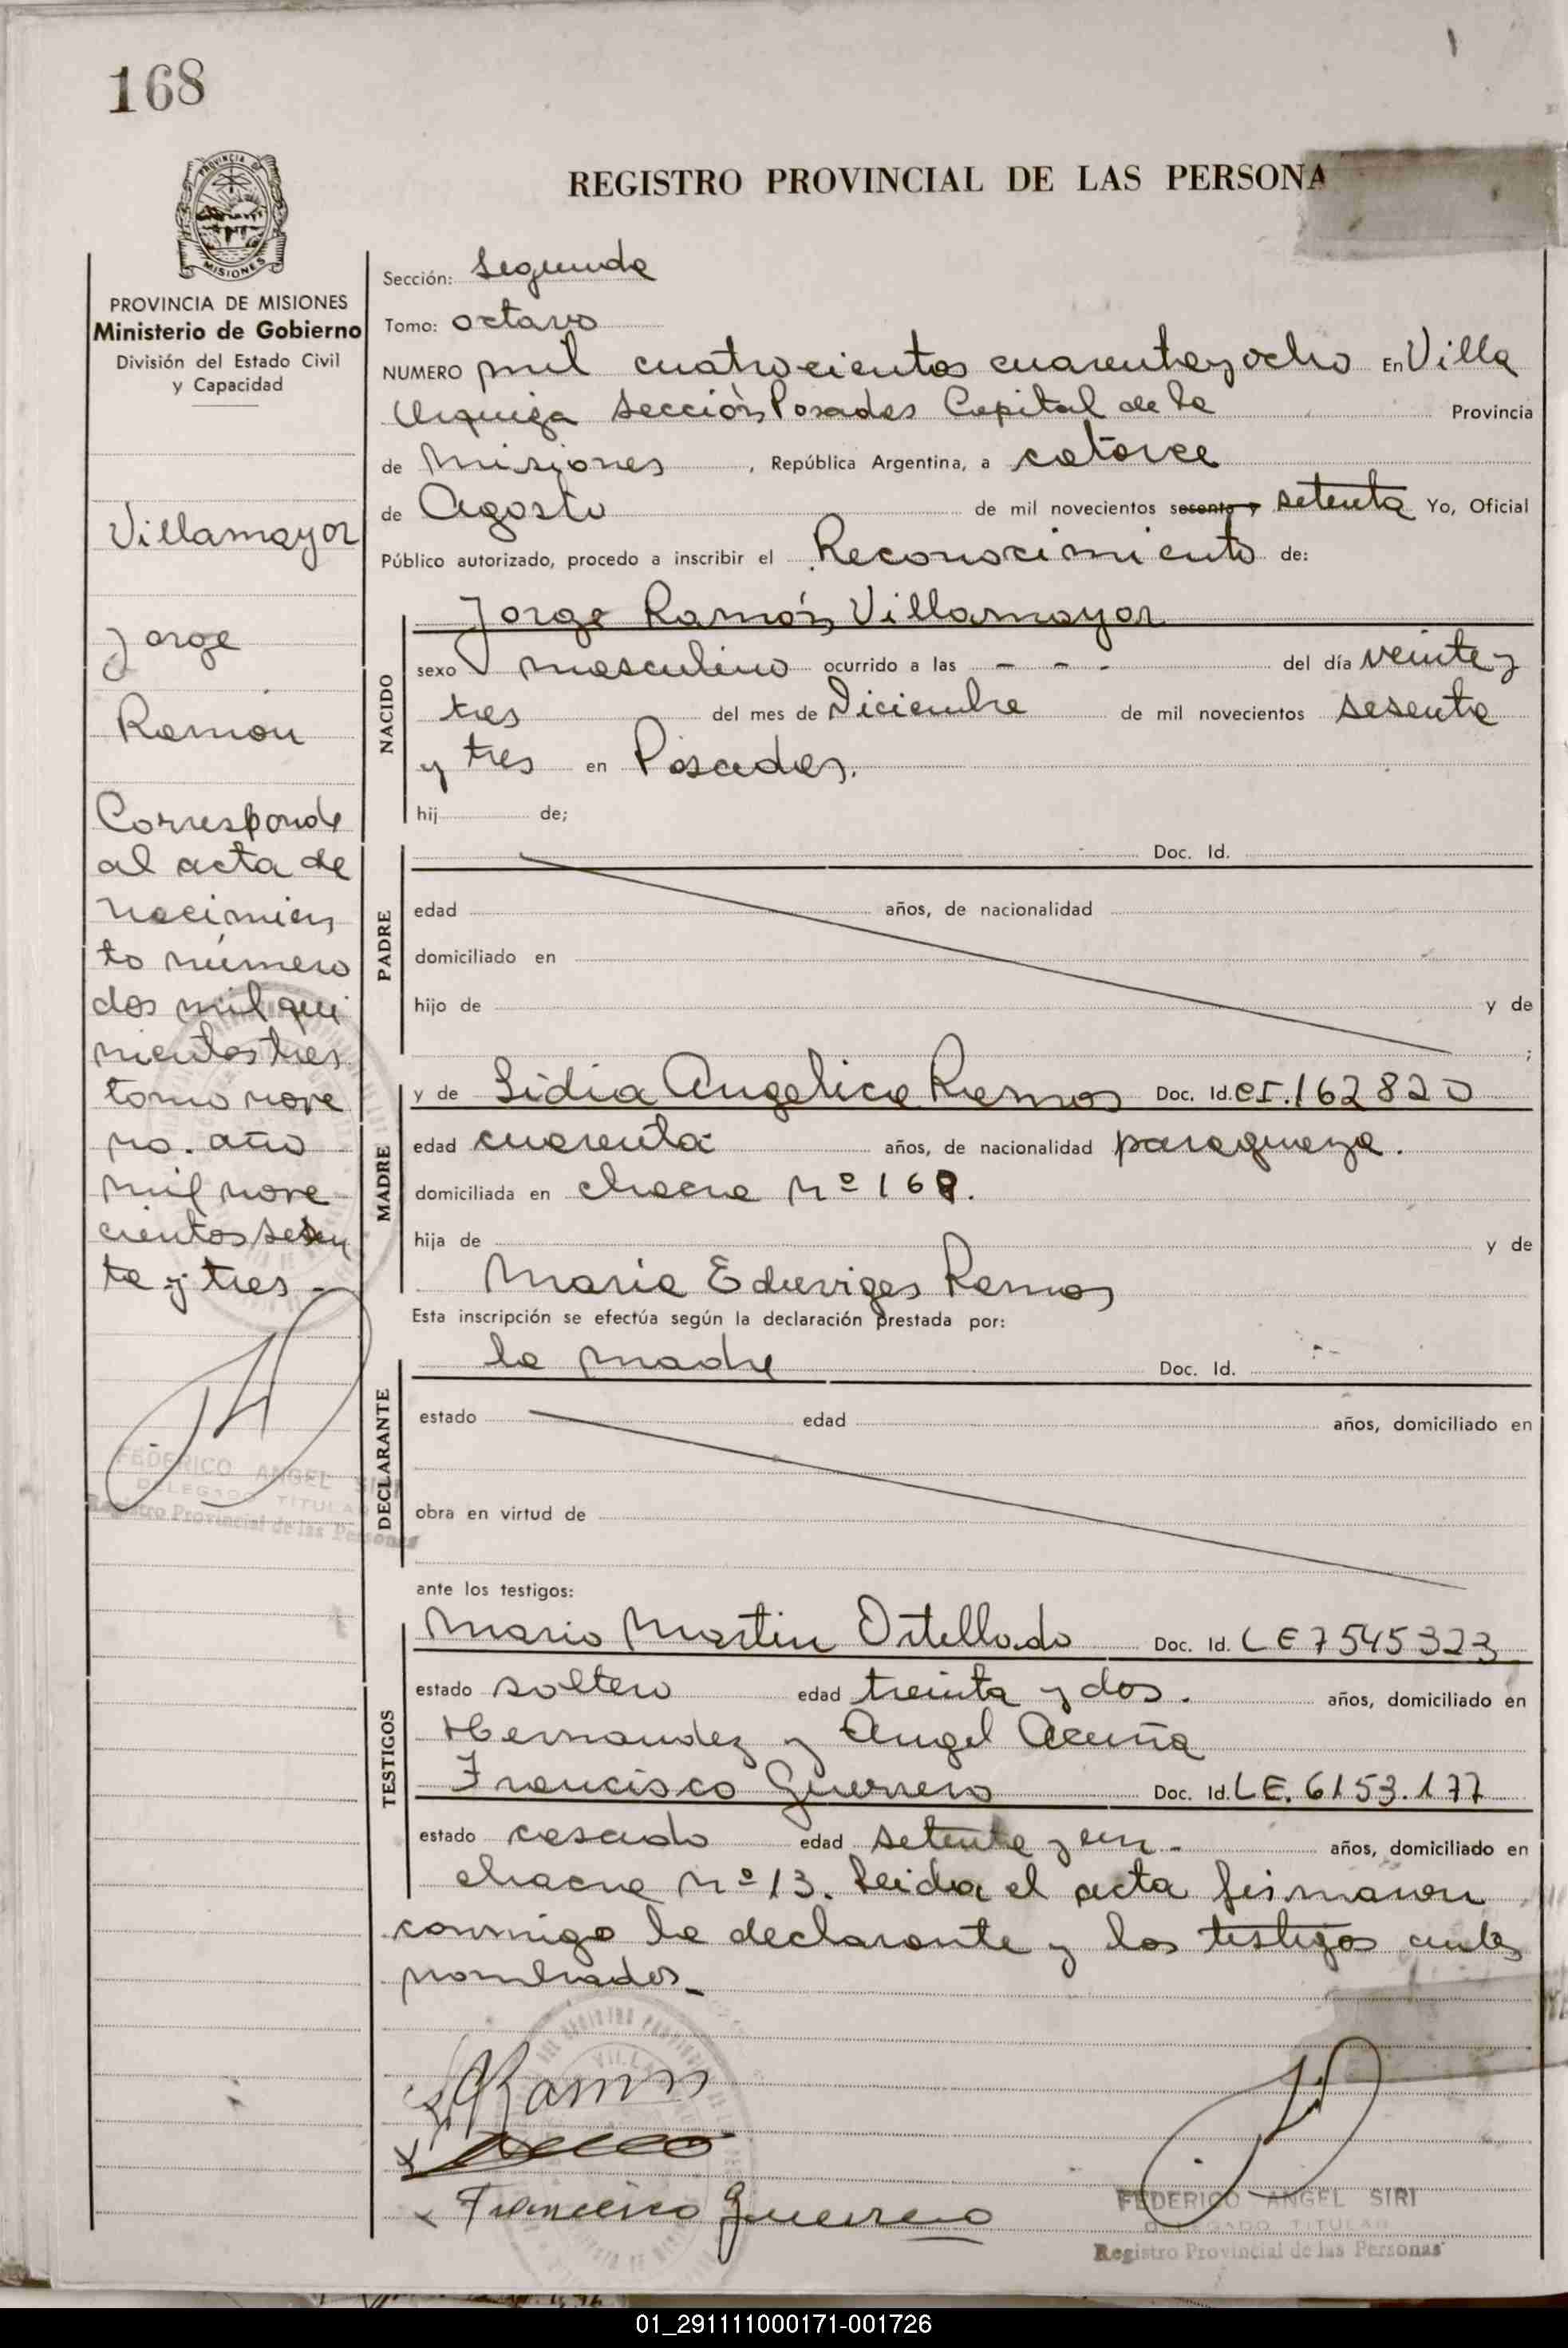 168
PROVINCIA DE MISIONES
REGISTRO PROVINCIAL DE LAS PERSONA
PROVINCIA DE MISIONES
Ministerio de Gobierno
División del Estado Civil
y Capacidad
Villamayor
Jorge
Ramón
Corresponde
al acta de
nacimien
to número
dos mil qui
nientos tres
tomo nove
no. año
mil nove
cientos sesen
ta y tres -
FEDERICO ANGEL SIRI
DELEGADO TITULAR
Registro Provincial de las Personas
Sección: Segunda
Tomo: octavo
NUMERO mil cuatrocientos cuarenta y ocho En Villa
Urquiza Sección Posadas Capital de la Provincia
de Misiones, República Argentina, a catorce
de Agosto de mil novecientos sesenta y setenta Yo, Oficial
Público autorizado, procedo a inscribir el Reconocimiento de:
NACIDO
Jorge Ramón Villamayor
sexo masculino ocurrido a las - - - del día veinte y
tres del mes de Diciembre de mil novecientos sesenta
y tres en Posadas.
hij de;
PADRE
Doc. Id.
edad años, de nacionalidad
domiciliado en
hijo de y de
;
MADRE
y de Lidia Angelica Ramos Doc. Id. CI. 162820
edad cuarenta años, de nacionalidad paraguaya.
domiciliada en chacra nº 168.
hija de y de
Maria Eduviges Ramos
Esta inscripción se efectúa según la declaración prestada por:
DECLARANTE
la madre Doc. Id. - -
estado edad años, domiciliado en
obra en virtud de
ante los testigos:
TESTIGOS
Mario Martin Ortellado Doc. Id. LE 7545323
estado soltero edad treinta y dos. años, domiciliado en
Hernandez y Angel Acuña
Francisco Guerrero Doc. Id. LE. 6153.177
estado casado edad setenta y un - años, domiciliado en
chacra nº 13. Leida el acta firmaron
conmigo la declarante y los testigos antes
nombrados.-
Ramos
Francisco Guerrero
FEDERICO ANGEL SIRI
DELEGADO TITULAR
Registro Provincial de las Personas
01_291111000171-001726